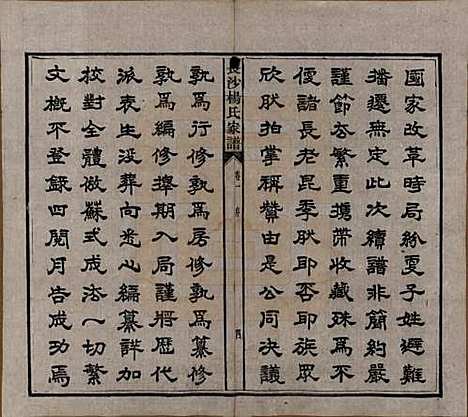 國家改革時局紛更子姓避難
播遷無定此次續譜非簡約嚴
謹節去繁重攜帶收藏殊為不
便諸長老昆季肰耶否耶族眾
欣肰拍掌稱贊由是公同決議
長沙楊氏家譜
卷一
孰為行修孰為房修孰為纂修
孰為編修擇期入局謹將歷代
派表生沒葬向悉心編纂詳加
校對全體倣蘇式成法一切繁
文槪不登錄四閱月告成功焉